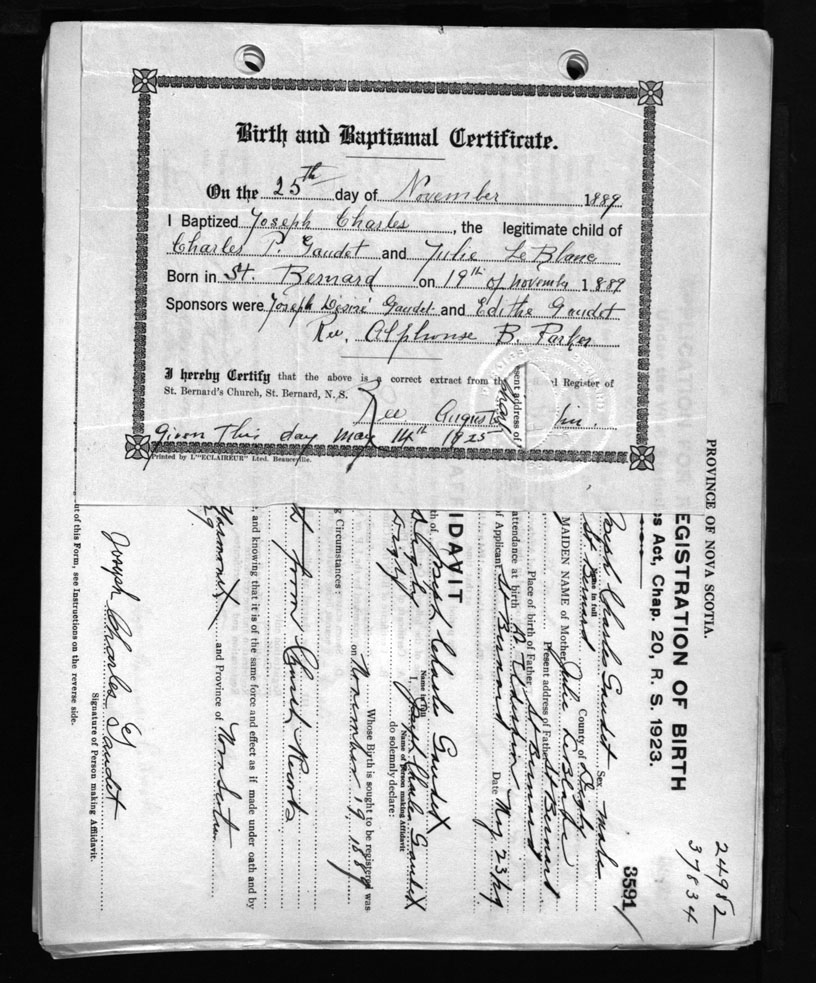 Birth and Baptismal Certificate.
On the 25th day of November 1889
I Baptized Joseph Charles, the legitimate child of
Charles P. Gaudet and Julie LeBlanc
Born in St. Bernard on 19th of november 1889
Sponsors were Joseph Désiré Gaudet and Edithe Gaudet
Rev. Alphonse B. Parker
I hereby Certify that the above is a correct extract from the Register of
St. Bernard's Church, St. Bernard, N. S.
Rev
given this day may 14th 1925
Printed by L'"ECLAIREUR" Lted. Beauceville.
24982
37834
3591
PROVINCE OF NOVA SCOTIA.
EGISTRATION OF BIRTH
s Act, Chap. 20, R. S. 1923.
Charles Gaudet Sex male
Name in full
St Bernard County of Digby
MAIDEN NAME of Mother Julie LeBlanc
Present address of Father St Bernard
Place of birth of Father St Bernard
attendance at birth
esent address of
of Applicant St Bernard Date May 23/29
IDAVIT
th of Joseph Charles Gaudet
Name in full
Digby I, Joseph Charles Gaudet
Name of person making Affidavit
Digby do solemnly declare:
Whose Birth is sought to be registered was
on November 19 1889
g Circumstances:
from Church Records
, and knowing that it is of the same force and effect as if made under oath and by
Yarmouth and Province of Nova Scotia
29
Joseph Charles Gaudet
Signature of Person making Affidavit.
ut of this Form, see Instructions on the reverse side.